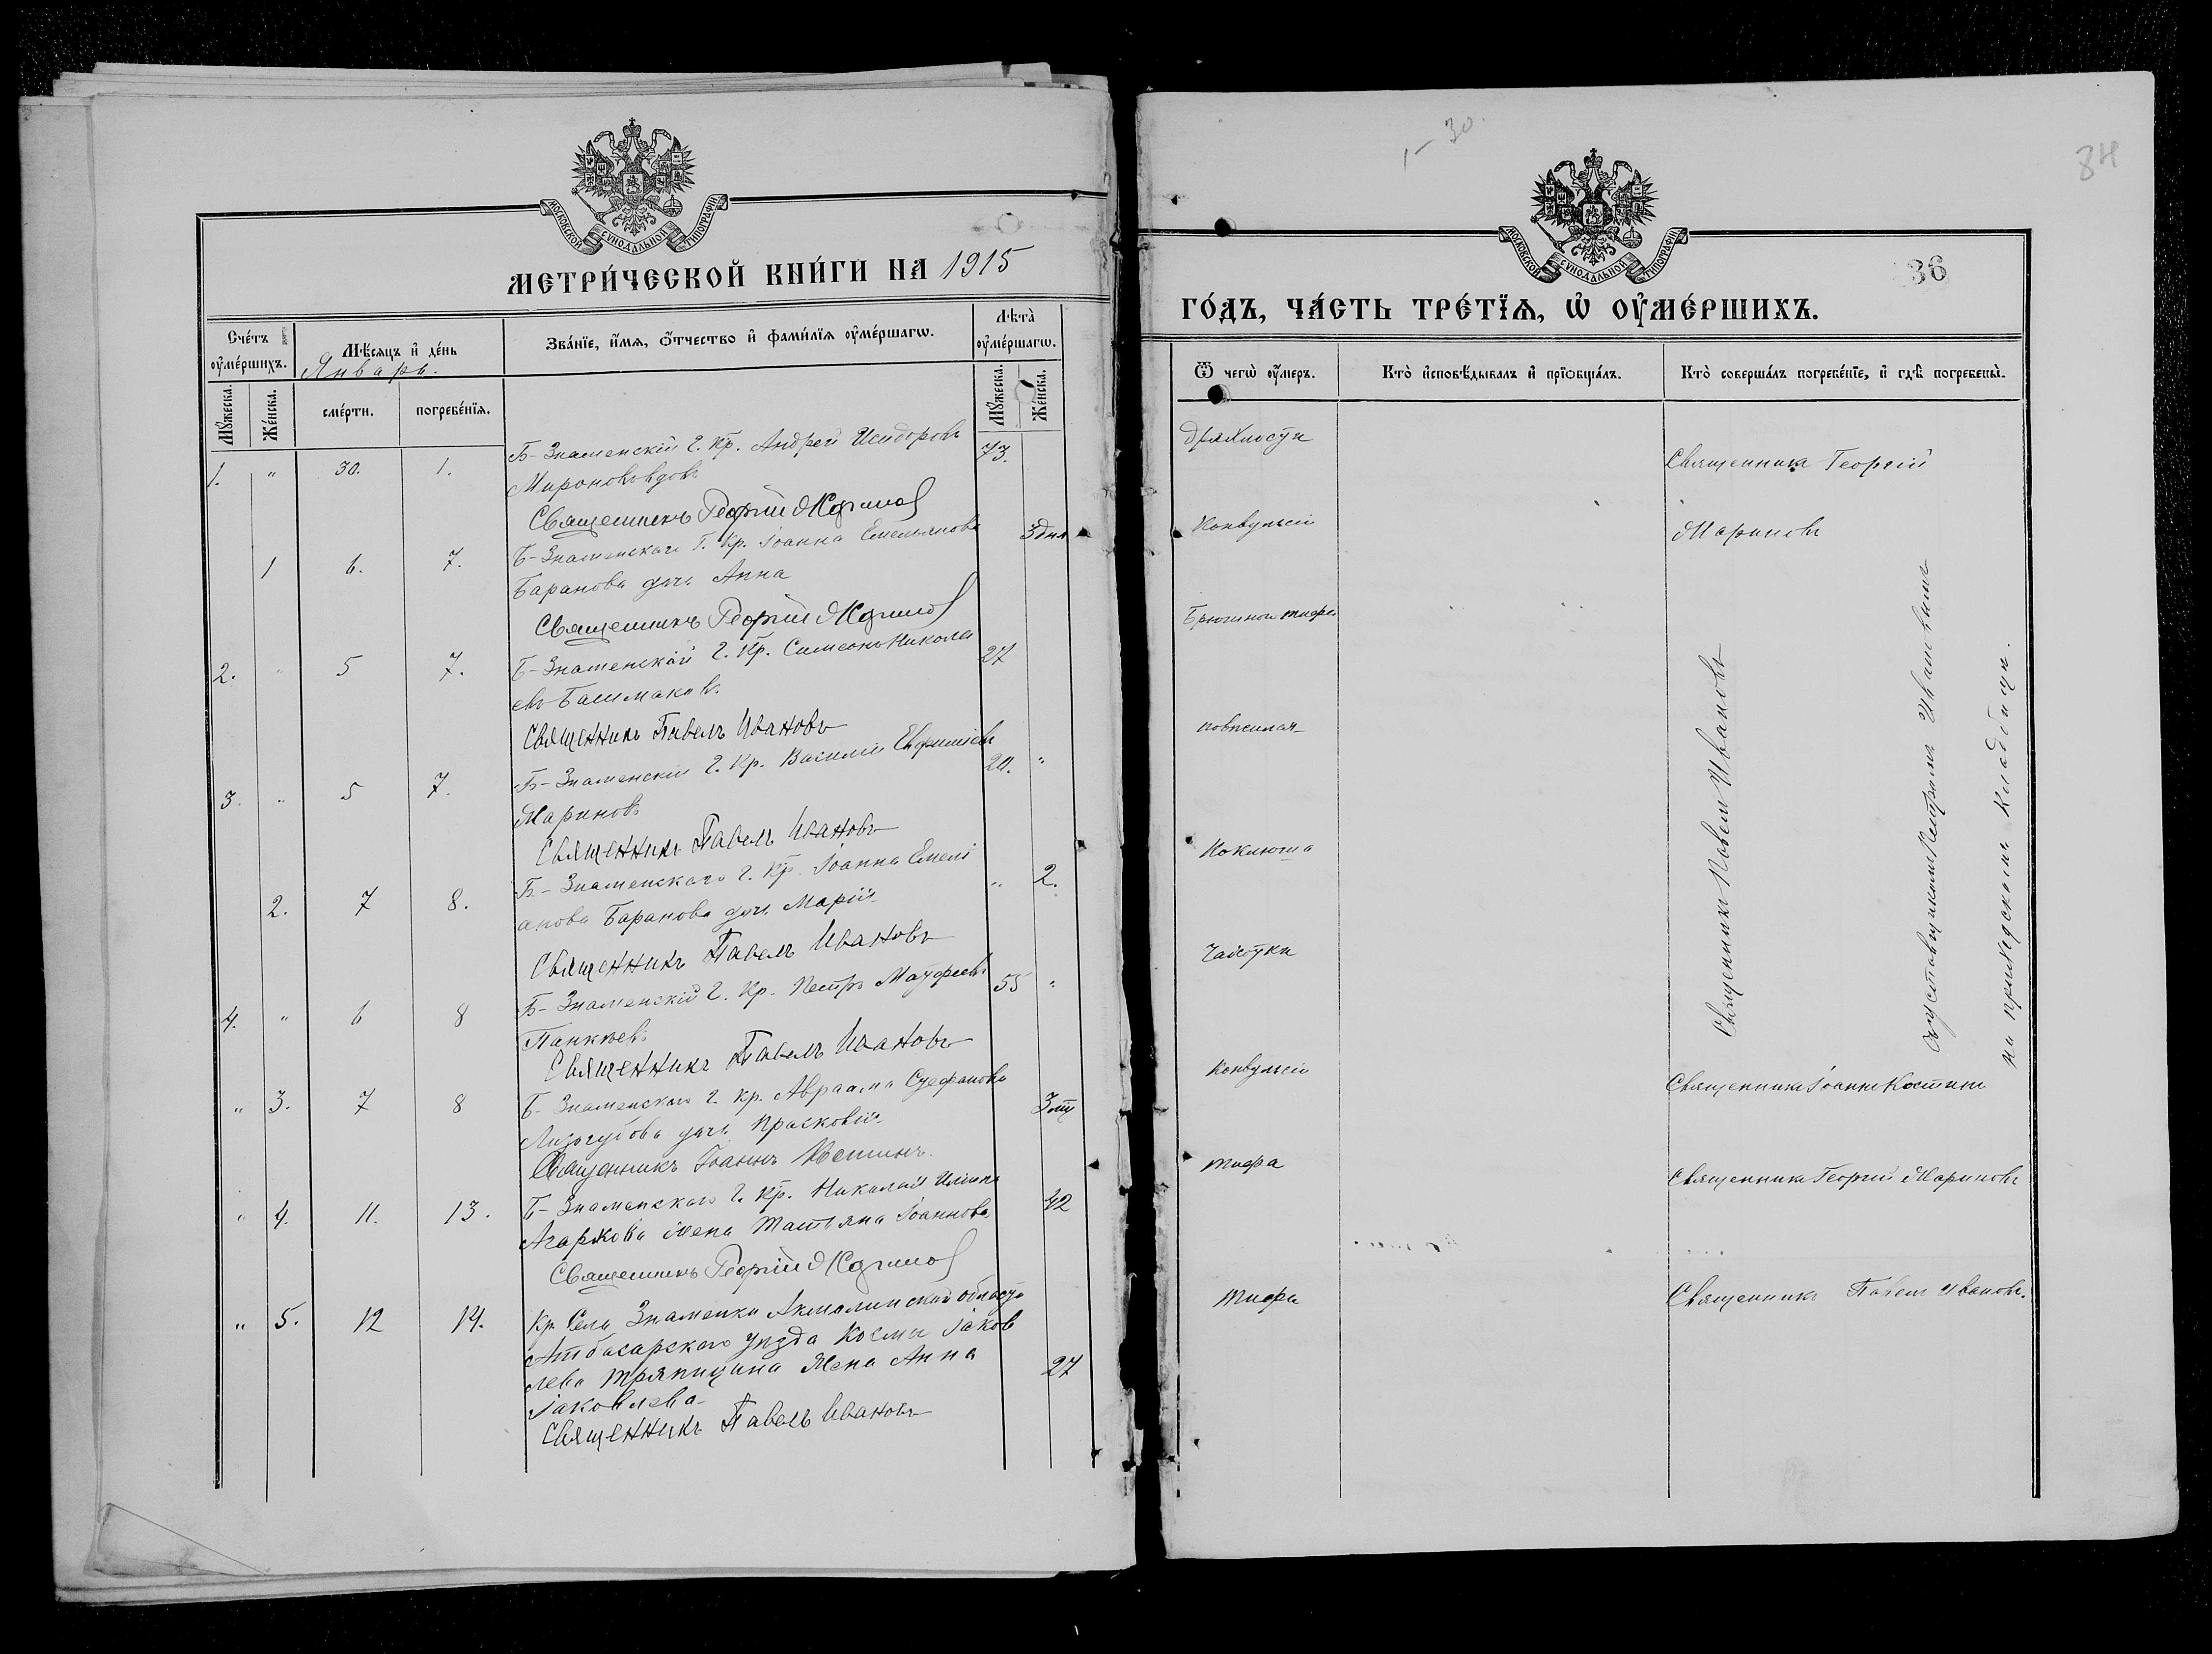 МОСКОВСКОЙ СѴНОДАЛЬНОЙ ТИПОГРАФІИ
МЕТРИ́ЧЕСКОЙ КНИ́ГИ НА 1915
Сче́тъ ᲂу҆ме́ршихъ.
Мѣ́сяцъ и҆ де́нь
Январь.
Зва́нїе, и҆́мя, ѻ҆́тчество и҆ фами́лїя ᲂу҆ме́ршагѡ.
Лѣ́та ᲂу҆ме́ршагѡ.
Мꙋ́жеска.
Же́нска.
сме́рти.
погребе́нїя.
Мꙋ́жеска.
Же́нска.
1. " 30. 1. Б-Знаменскій г. Кр. Андрей Исидоровъ 73.
Мироновъ вдовъ
Священникъ Георгій Мариновъ
1 6. 7. Б-Знаменскаго г. Кр. Іоанна Емельянова 3 дня
Баранова доч. Анна
Священникъ Георгій Мариновъ
2. " 5 7. Б-Знаменскій г. Кр. Симеонъ Никола 27
евъ Башмаковъ.
Священникъ Павелъ Ивановъ
3. " 5 7. Б-Знаменскій г. Кр. Василій Евфиміевъ 20. "
Мариновъ
Священникъ Павелъ Ивановъ
2. 7 8. Б-Знаменскаго г. Кр. Іоанна Емелі " 2.
анова Баранова доч. Марія
Священникъ Павелъ Ивановъ
4. " 6 8 Б-Знаменскій г. Кр. Петръ Матфеевъ 55 "
Священникъ Павелъ Ивановъ
" 3. 7 8 Б-Знаменскаго г. Кр. Авраама Стефанова
доч. Прасковія
Священникъ Іоаннъ Костинъ.
" 4. 11. 13. Б-Знаменскаго г. Кр. Николая 42
Агаркова жена Татьяна Іоаннова
Священникъ Георгій Мариновъ
" 5. 12 14. Кр. Села Знаменки Акмолинской области
Атбасарскаго уѣзда Космы Іаков
лева Тряпицина жена Анна 27
Іаковлева
Священникъ Павелъ Ивановъ
1-30.
84
МОСКОВСКОЙ СѴНОДАЛЬНОЙ ТИПОГРАФІИ
36
ГО́ДЪ, ЧА́СТЬ ТРЕ́ТЇѦ, Ѡ҆ ОУ҆МЕ́РШИХЪ.
Ѿ чегѡ̀ ᲂу҆́меръ.
Кто̀ и҆сповѣ́дывалъ и҆ прїѻбща́лъ.
Кто̀ соверша́лъ погребе́нїе, и҆ гдѣ̀ погребены̀.
Дряхлости
Священникъ Георгій
Конвульсіи
Мариновъ
Брюшного тифа
Коклюша
Чахотки
Священникъ Павелъ Ивановъ
на приходскомъ кладбищѣ.
Конвульсіи
Священникъ Іоаннъ Костинъ
Тифа
Священникъ Георгій Мариновъ
Тифа
Священникъ Павелъ Ивановъ.